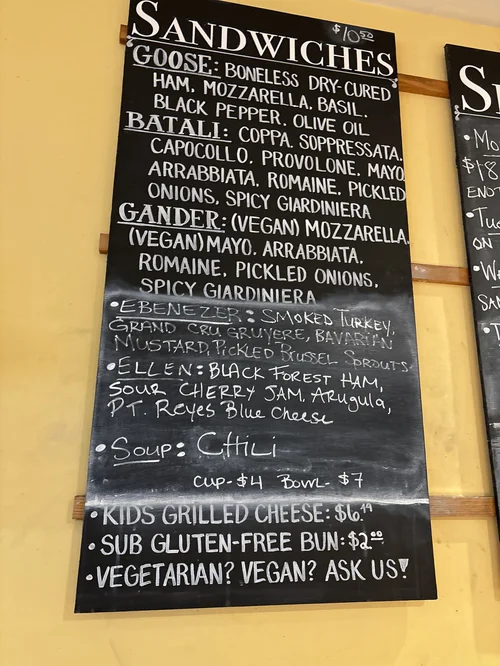 SANDWICHES $10.50
GOOSE: BONELESS DRY-CURED
HAM, MOZZARELLA, BASIL,
BLACK PEPPER, OLIVE OIL
BATALI: COPPA, SOPPRESSATA,
CAPOCOLLO, PROVOLONE, MAYO,
ARRABBIATA, ROMAINE, PICKLED
ONIONS, SPICY GIARDINIERA
GANDER: (VEGAN) MOZZARELLA,
(VEGAN) MAYO, ARRABBIATA,
ROMAINE, PICKLED ONIONS,
SPICY GIARDINIERA
• EBENEZER: SMOKED TURKEY,
GRAND CRU GRUYERE, BAVARIAN
MUSTARD, PICKLED BRUSSEL SPROUTS
• ELLEN: BLACK FOREST HAM,
SOUR CHERRY JAM, Arugula,
PT. Reyes Blue Cheese
• Soup: CHILI
CUP- $4 BOWL- $7
• KIDS GRILLED CHEESE: $6.14
• SUB GLUTEN-FREE BUN: $2.00
• VEGETARIAN? VEGAN? ASK US!
$18
ON